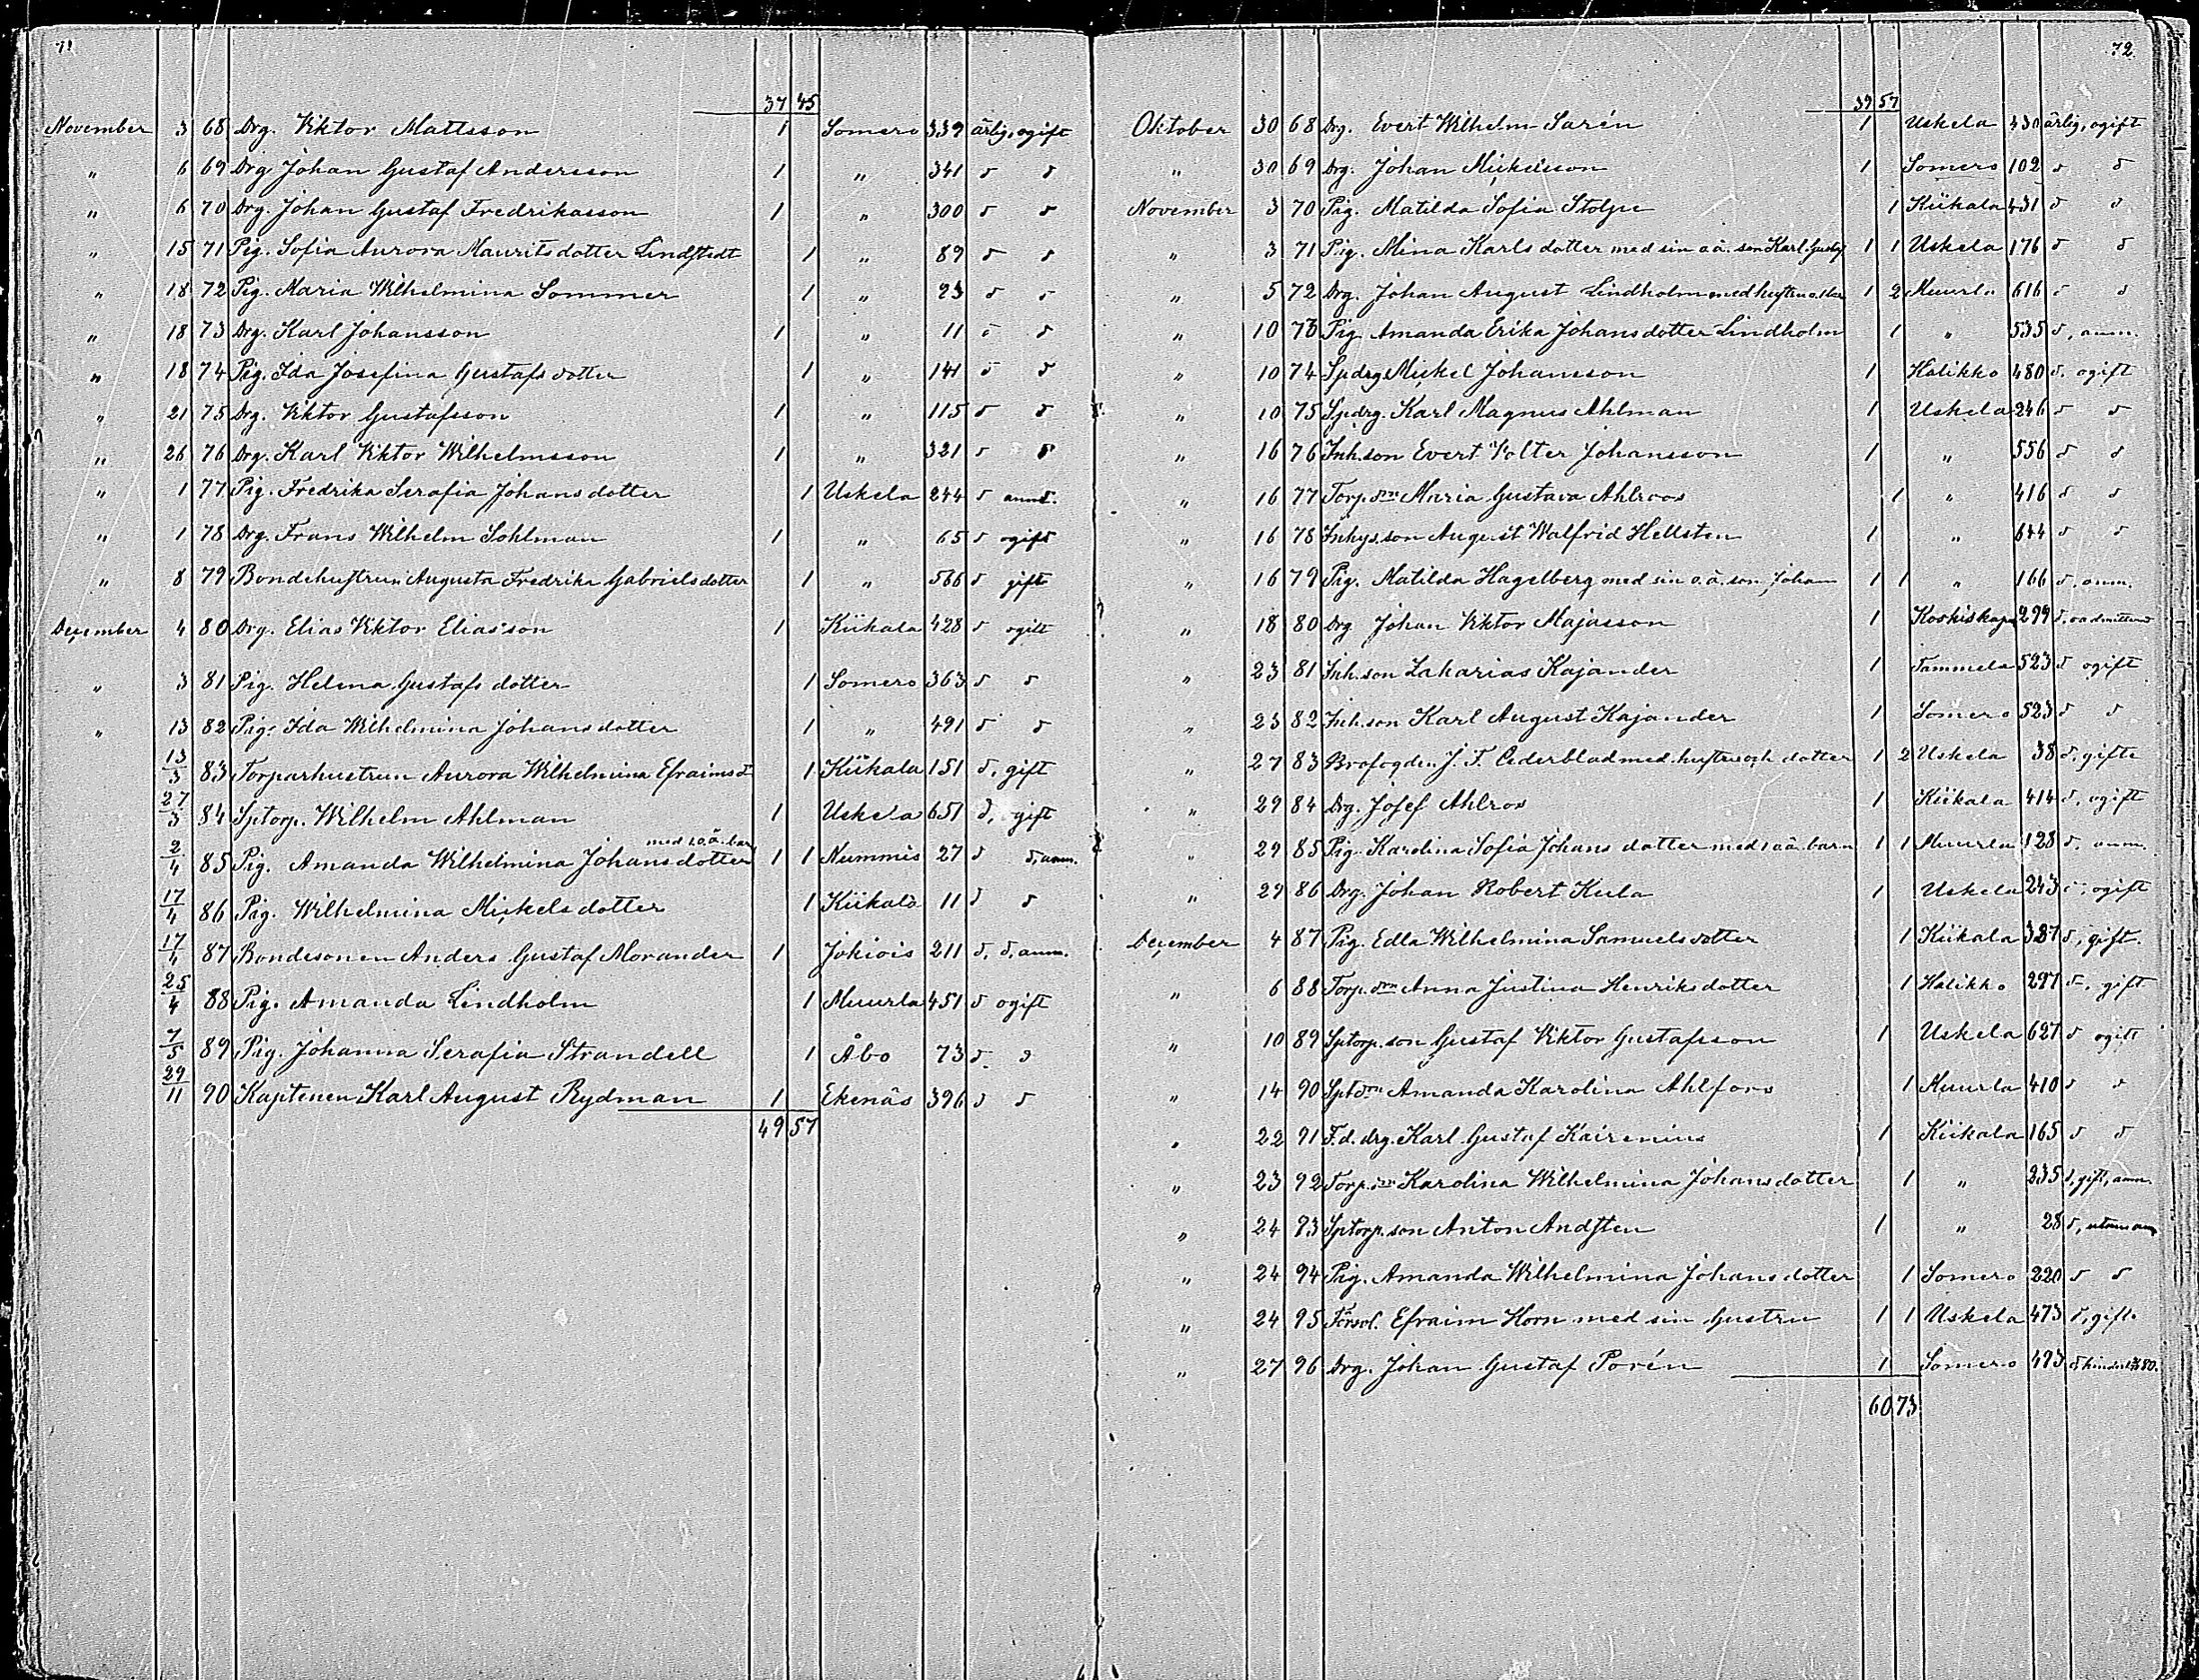 71
37 45
November 3 68 Drg. Viktor Mattsson 1 Somero 339 ärlig, ogift
" 6 69 Drg. Johan Gustaf Andersson 1 " 341 d d
" 6 70 Drg. Johan Gustaf Fredriksson 1 " 300 d d
" 15 71 Pig. Sofia Aurora Mauritsdotter Lindstedt 1 " 89 d d
" 18 72 Pig. Maria Wilhelmina Sommer 1 " 23 d d
" 18 73 Drg. Karl Johansson 1 " 11 d d
" 18 74 Pig. Ida Josefina Gustafsdotter 1 " 141 d d
" 21 75 Drg. Viktor Gustafsson 1 " 115 d d
" 26 76 Drg. Karl Viktor Wilhelmsson 1 " 321 d d
" 1 77 Pig. Fredrika Serafia Johansdotter 1 Uskela 244 d anm.
" 1 78 Drg. Frans Wilhelm Sohlman 1 " 65 d ogift
" 8 79 Bondehustrun Augusta Fredrika Gabrielsdotter 1 " 566 d gift
December 4 80 Drg. Elias Viktor Eliasson 1 Kiikala 428 d ogift
" 3 81 Pig. Helena Gustafsdotter 1 Somero 363 d d
" 13 82 Pig. Ida Wilhelmina Johansdotter 1 " 491 d d
13/3 83 Torparhustrun Aurora Wilhelmina Efraimsd 1 Kiikala 151 d, gift
27/3 84 Sptorp. Wilhelm Ahlman 1 Uskela 651 d, gift
med 1 o.ä. barn
2/4 85 Pig. Amanda Wilhelmina Johansdotter 1 1 Nummis 27 d d, anm.
17/4 86 Pig. Wilhelmina Mickelsdotter 1 Kiikala 11 d d
17/4 87 Bondesonen Anders Gustaf Morander 1 Jokiois 211 d, d, anm.
25/4 88 Pig. Amanda Lindholm 1 Muurla 451 d ogift
7/5 89 Pig. Johanna Serafia Strandell 1 Åbo 73 d d
29/11 90 Kaptenen Karl August Rydman 1 Ekenäs 396 d d
49 57
72
39 57
Oktober 30 68 Drg. Evert Wilhelm Sarén 1 Uskela 430 ärlig, ogift
" 30 69 Drg. Johan Mickelsson 1 Somero 102 d d
November 3 70 Pig. Matilda Sofia Stolpe 1 Kiikala 431 d d
" 3 71 Pig. Mina Karlsdotter med sin o.ä. son Karl Gustaf 1 1 Uskela 176 d d
" 5 72 Drg. Johan August Lindholm med hustru 1 2 Muurla 616 d d
" 10 73 Pig. Amanda Erika Johansdotter Lindholm 1 " 535 d, anm.
" 10 74 Spdrg Mickel Johansson 1 Halikko 480 d. ogift
" 10 75 Spdrg. Karl Magnus Ahlman 1 Uskela 246 d d
" 16 76 Inh.son Evert Volter Johansson 1 " 556 d d
" 16 77 Torp.drn Maria Gustava Ahlroos 1 " 416 d d
" 16 78 Inhys.son August Walfrid Hellsten 1 " 644 d d
" 16 79 Pig. Matilda Hagelberg med sin o.ä. son Johan 1 1 " 166 d, anm.
" 18 80 Drg Johan Viktor Majasson 1 Koskis kapell 299 d, oadmitterad
" 23 81 Inh.son Zakarias Kajander 1 Tammela 523 d ogift
" 23 82 Inh.son Karl August Kajander 1 Somero 523 d d
" 27 83 Brofogden J. F. Cederblad med hustru och dotter 1 2 Uskela 38 d, gifte
" 29 84 Drg. Josef Ahlros 1 Kiikala 414 d, ogift
" 29 85 Pig. Karolina Sofia Johansdotter med 1 o.ä. barn 1 1 Muurla 128 d, anm.
" 29 86 Drg. Johan Robert Kula 1 Uskela 243 d, ogift
December 4 87 Pig. Edla Wilhelmina Samuelsdotter 1 Kiikala 387 d, gift.
" 6 88 Torp.drn Anna Justina Henriksdotter 1 Halikko 297 d, gift
" 10 89 Sptorp.son Gustaf Viktor Gustafsson 1 Uskela 627 d ogift
" 14 90 Sptdrn Amanda Karolina Ahlfors 1 Muurla 410 d d
" 22 91 F.d. drg. Karl Gustaf Kairenius 1 Kiikala 165 d d
" 23 92 Torp.drn Karolina Wilhelmina Johansdotter 1 " 235 d, gift, anm.
" 24 93 Sptorp.son Anton Andsten 1 " 28 d, utan anm
" 24 94 Pig. Amanda Wilhelmina Johansdotter 1 Somero 220 d d
" 24 95 Försol. Efraim Horn med sin hustru 1 1 Uskela 473 d, gift.
" 27 96 Drg. Johan Gustaf Porén 1 Somero 493 d, 80.
60 73